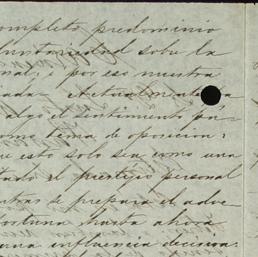 completo predominio
autoridad sobre la
onal, i por eso nuestra
ada. Actualmente
algo el sentimiento
como tema de oposicion:
que esto solo sea como una
el prestijio personal
tras se prepara el adve
fortuna, hasta ahora
una influencia decisiva